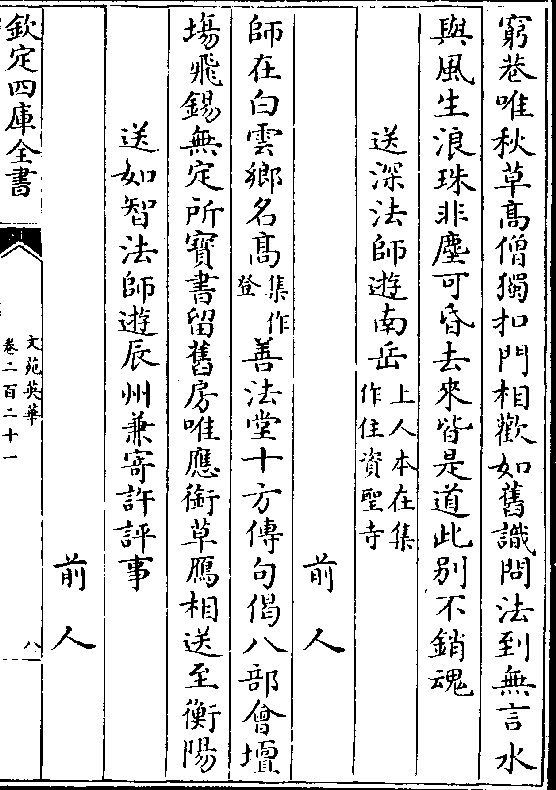 窮巷唯秋草髙僧獨扣門相歡如舊識問法到無言水
與風生浪珠非塵可昏去來皆是道此别不銷魂
送深法師遊南岳上人本在集
作住資聖寺
前人
師在白雲鄉名髙集作
登善法堂十方傳句偈八部㑹壇
塲飛錫無定所寳書留舊房唯應銜草鴈相送至衡陽
送如智法師遊辰州兼寄許評事
前人
欽定四庫全書
文苑英華
卷二百二十一
八